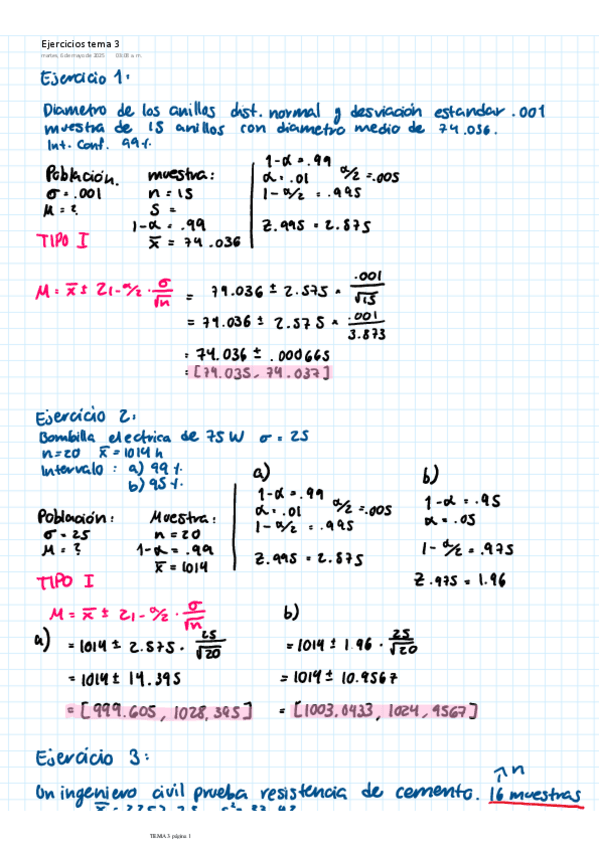 Ejercicios tema 3
martes, 6 de mayo de 2025 05:05 a. m.
Ejercicio 1:
Diametro de los anillos dist. normal y desviación estandar .001
muestra de 15 anillos con diametro medio de 74.036.
Int. Conf. 99%.
Población.
σ = .001
M = ?
TIPO I
muestra:
n = 15
S =
1-α = .99
x̄ = 74.036
1-α = .99
α = .01 α/2 = .005
1-α/2 = .995
Z.995 = 2.575
M = x̄ ± Z1-α/2 · σ/√n = 74.036 ± 2.575 * .001/√15
= 74.036 ± 2.575 * .001/3.873
= 74.036 ± .000665
= [74.035, 74.037]
Ejercicio 2:
Bombilla electrica de 75W σ = 25
n=20 x̄ = 1014 h
Intervalo : a) 99%.
b) 95%.
Población:
σ = 25
M = ?
TIPO I
Muestra:
n = 20
1-α = .99
x̄ = 1014
a)
1-α = .99
α = .01 α/2 = .005
1-α/2 = .995
Z.995 = 2.575
b)
1-α = .95
α = .05
1-α/2 = .975
Z.975 = 1.96
M = x̄ ± Z1-α/2 · σ/√n
a) = 1014 ± 2.575 · 25/√20
= 1014 ± 14.395
= [999.605, 1028.395]
b)
= 1014 ± 1.96 · 25/√20
= 1014 ± 10.9567
= [1003.0433, 1024.9567]
Ejercicio 3:
n
Un ingeniero civil prueba resistencia de cemento. 16 muestras
TEMA 3 página 1